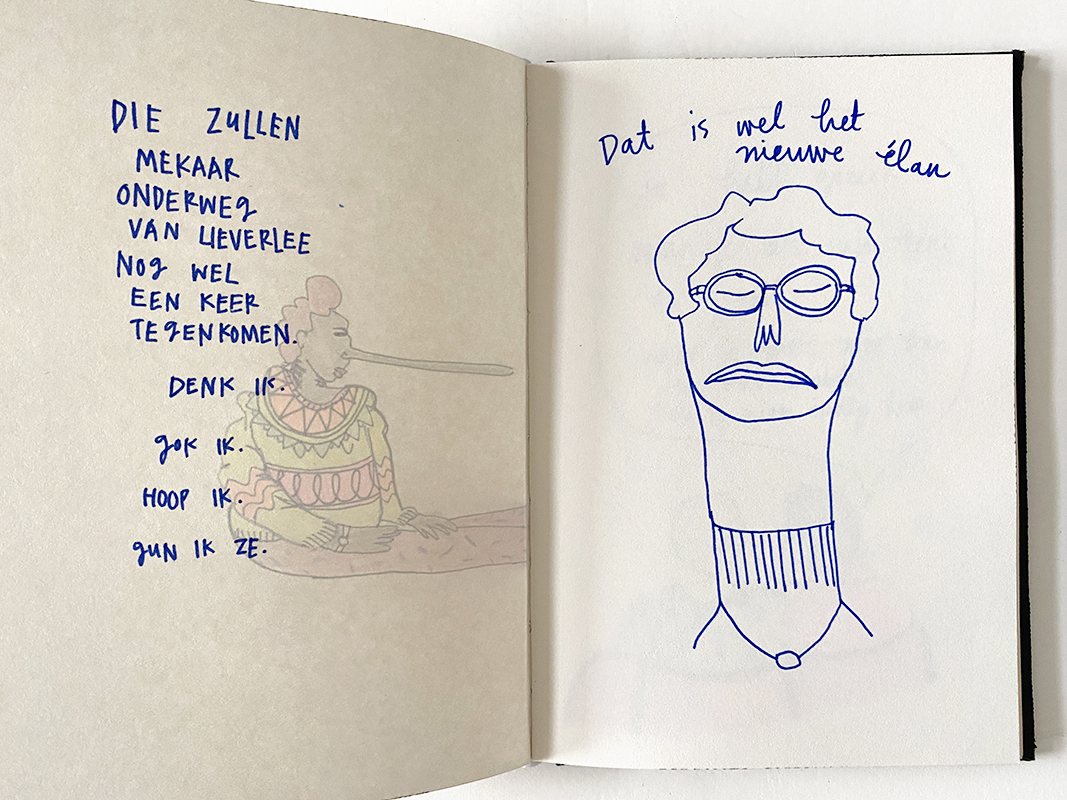 DIE ZULLEN
MEKAAR
ONDERWEG
VAN LIEVERLEE
NOG WEL
EEN KEER
TEGENKOMEN.
DENK IK.
GOK IK.
HOOP IK.
GUN IK ZE.
Dat is wel het
nieuwe élan